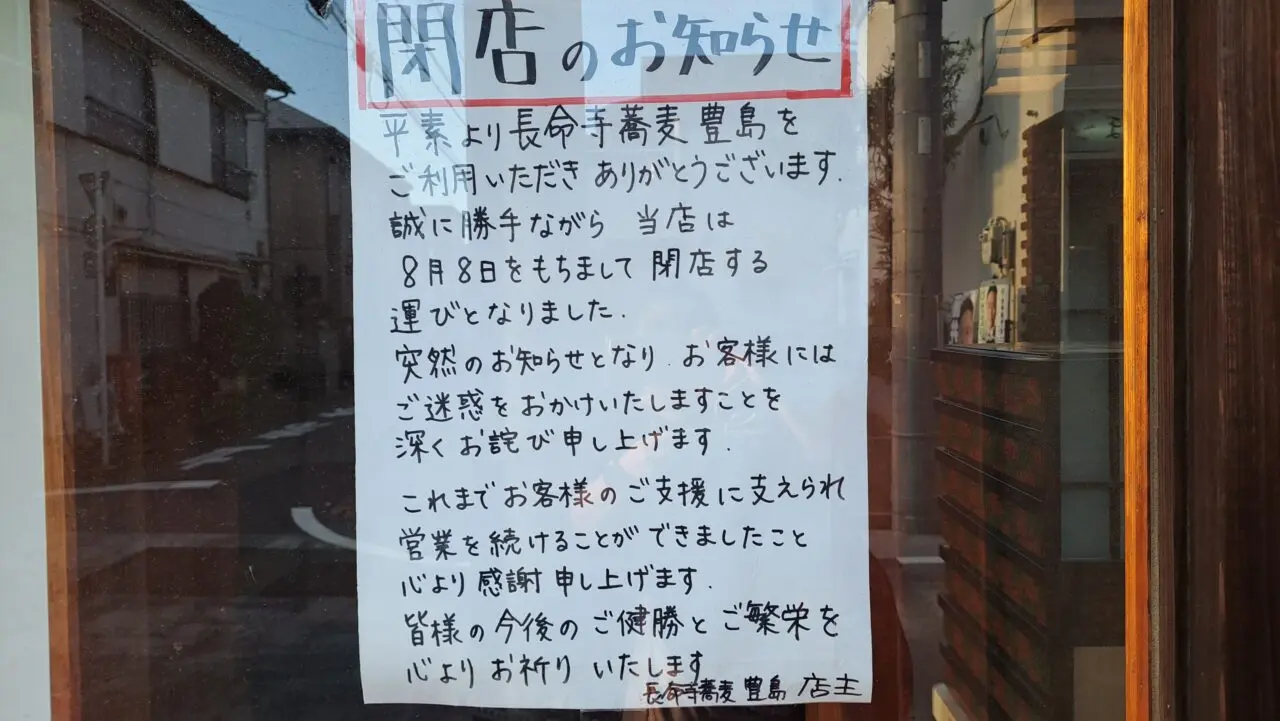 閉店のお知らせ
平素より長命寺蕎麦 豊島を
ご利用いただき ありがとうございます.
誠に勝手ながら 当店は
8月8日をもちまして 閉店する
運びとなりました.
突然のお知らせとなり. お客様には
ご迷惑をおかけいたしますことを
深くお詫び申し上げます.
これまでお客様のご支援に支えられ
営業を続けることができましたこと
心より感謝申し上げます.
皆様の今後のご健勝とご繁栄を
心よりお祈り いたします
長命寺蕎麦 豊島 店主